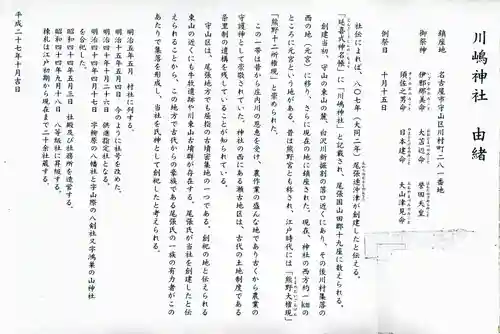 川嶋神社 由緒
鎮座地 名古屋市守山区川村町二八一番地
御祭神 伊邪那美命 天忍辺命 誉田天皇
須佐之男命 日本建命 大山津見命
例祭日 十月十五日
社伝によれば、八〇七年(大同二年)尾張連沖津が創建したと伝える。
『延喜式神名帳』に「川嶋神社」と記載され、尾張国山田郡十九座に数えられる。
創建当初、守山の東山の麓、白沢川新掘割の落口近くにあり、その後川村集落の
西の地(元宮)に移り、さらに現在の地に鎮座された。現在、神社の西方約一㎞の
ところに元宮という地がある。昔は熊野宮とも称され、江戸時代には「熊野大権現」
「熊野十二所権現」と崇められた。
この一帯は昔から庄内川の恩恵を受け、農作業の盛んな地であり古くから農業の
守護神として崇敬されていた。神社の西にある瀬古地区は、古代の土地制度である
条里制の遺構を残していることが知られている。
守山区は、尾張地方でも屈指の古墳密集地の一つである。創祀の地と伝えられる
東山の近くにも牛牧遺跡や川東山古墳群が存在する。尾張氏が当社を創建したと伝
えられることから、この地方で古代からの豪族である尾張氏の一族の有力者がこの
あたりで集落を形成し、当社を氏神として創祀したと考えられる。
明治五年五月 村社に列する。
明治十五年五月四日 今のように社号を改めた。
明治四十年十月二十六日 供進指定社となる。
明治四十四年四月十七日 字柳原の八幡社と字山際の八剣社又字鴻巣の山神社
を合祀した。
昭和四十年四月五日 社殿及び社務所を造営する。
昭和四十四年九月十八日 八等級社に昇級する。
棟札は江戸初期から現在まで二十余社蔵する。
平成二十七年十月吉日